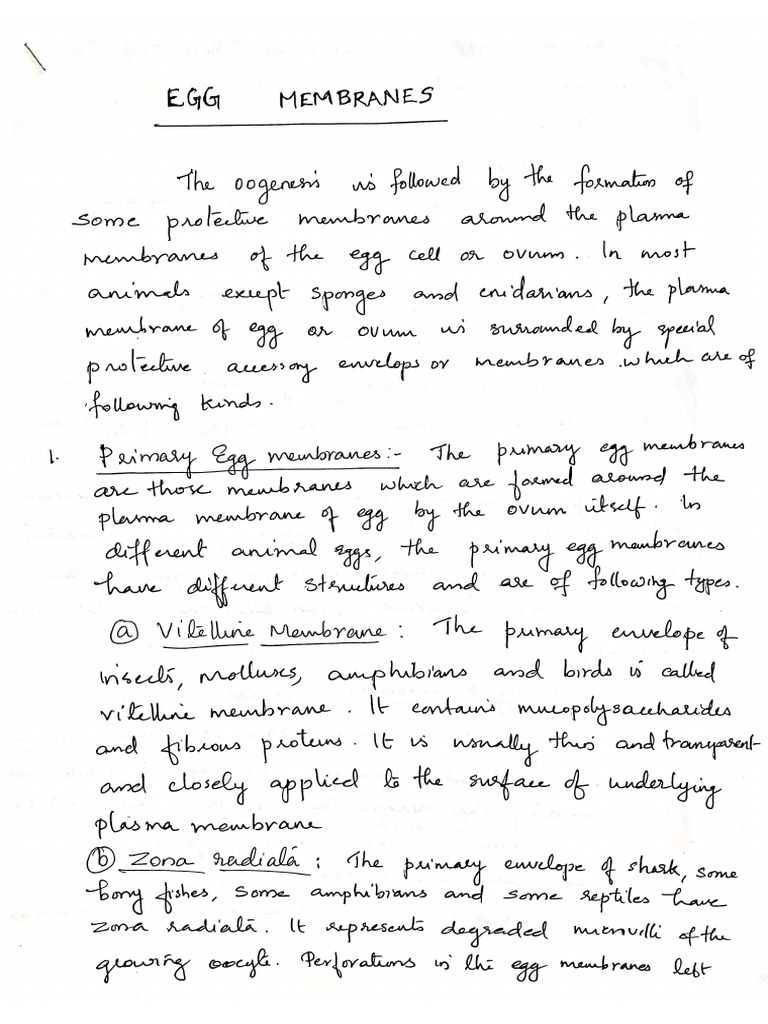 EGG MEMBRANES
The oogenesis is followed by the formation of
some protective membranes around the plasma
membranes of the egg cell or ovum. In most
animals except sponges and cnidarians, the plasma
membrane of egg or ovum is surrounded by special
protective accessory envelops or membranes which are of
following kinds.
1. Primary Egg membranes:- The primary egg membranes
are those membranes which are formed around the
plasma membrane of egg by the ovum itself. In
different animal eggs, the primary egg membranes
have different structures and are of following types.
(a) Vitelline Membrane : The primary envelope of
insects, molluscs, amphibians and birds is called
vitelline membrane. It contains mucopolysaccharides
and fibrous proteins. It is usually thin and transparent
and closely applied to the surface of underlying
plasma membrane
(b) Zona radiata : The primary envelope of shark, some
bony fishes, some amphibians and some reptiles have
zona radiata. It represents degraded microvilli of the
growing oocyte. Perforations in the egg membranes left